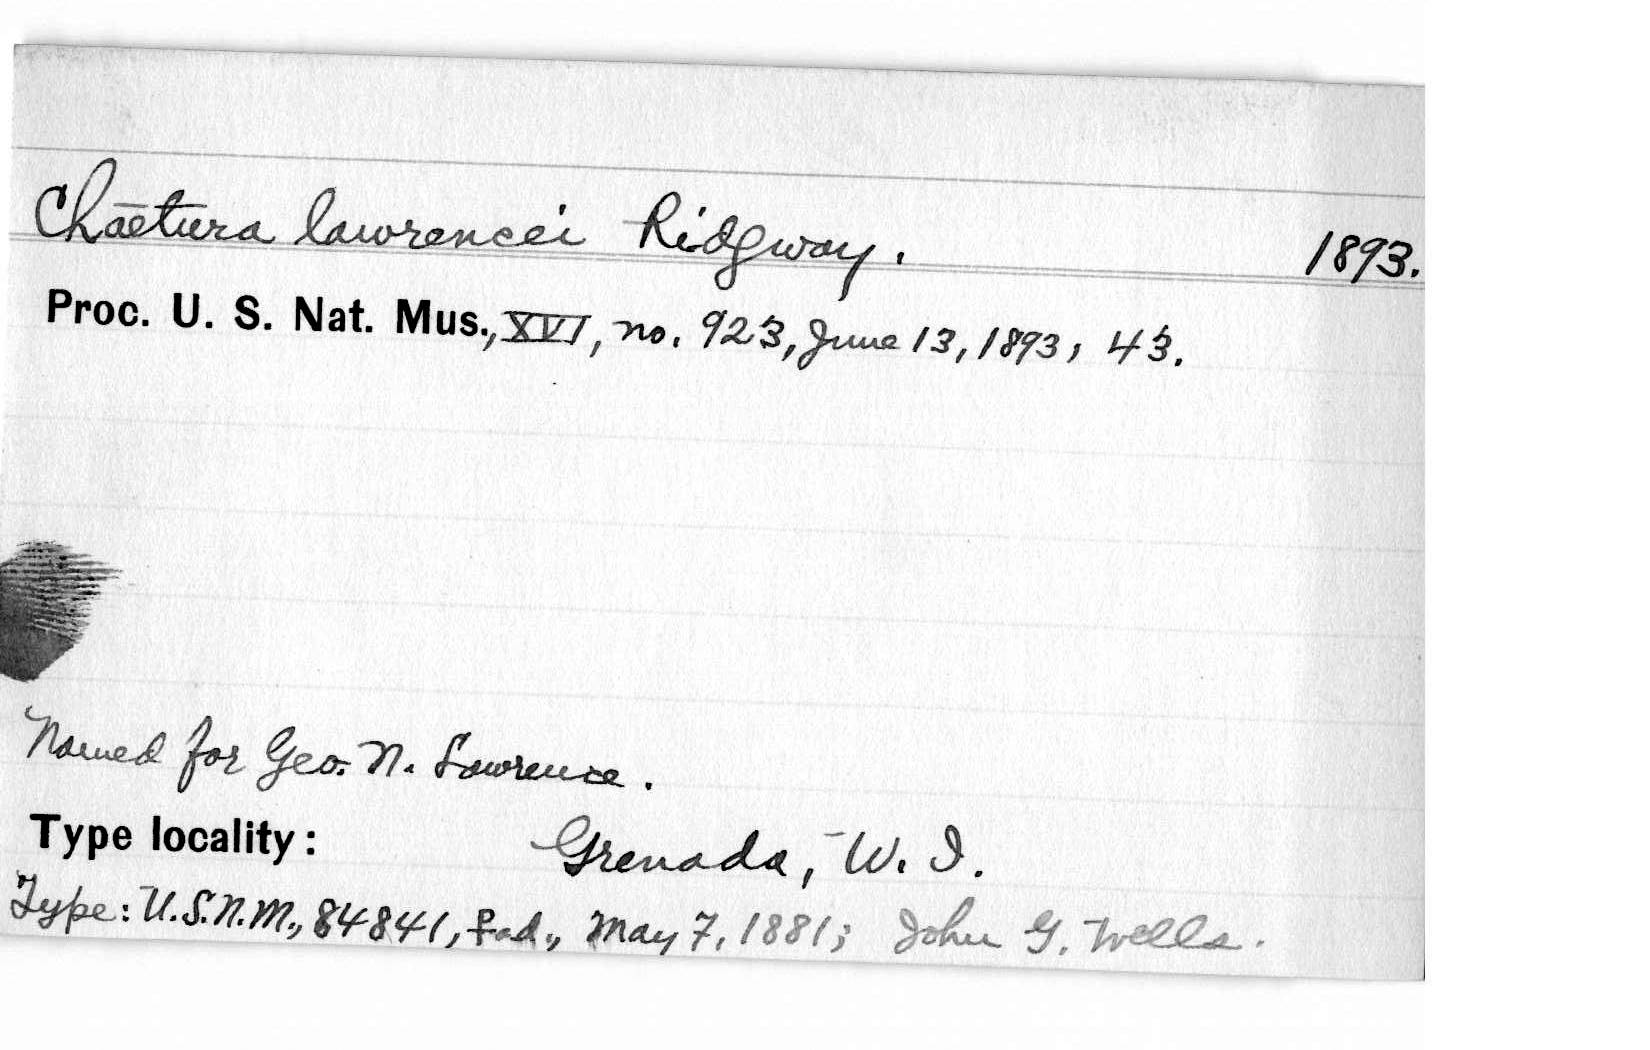 Chaetura lawrencei Ridgway. 1893.
Proc. U. S. Nat. Mus., XVI, no. 923, June 13, 1893, 43.
Named for Geo. N. Lawrence.
Type locality: Grenada, W. I.
Type: U.S.N.M., 84841, ♀ad., May 7, 1881; John G. Wells.